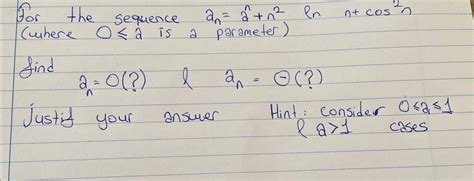 For the sequence aₙ = aⁿ + n² ln n + cos²n
(where 0 ⩽ a is a parameter)
find
aₙ = O(?) & aₙ = Θ(?)
Justify your answer Hint: consider 0 ≤ a ≤ 1
& a > 1 cases